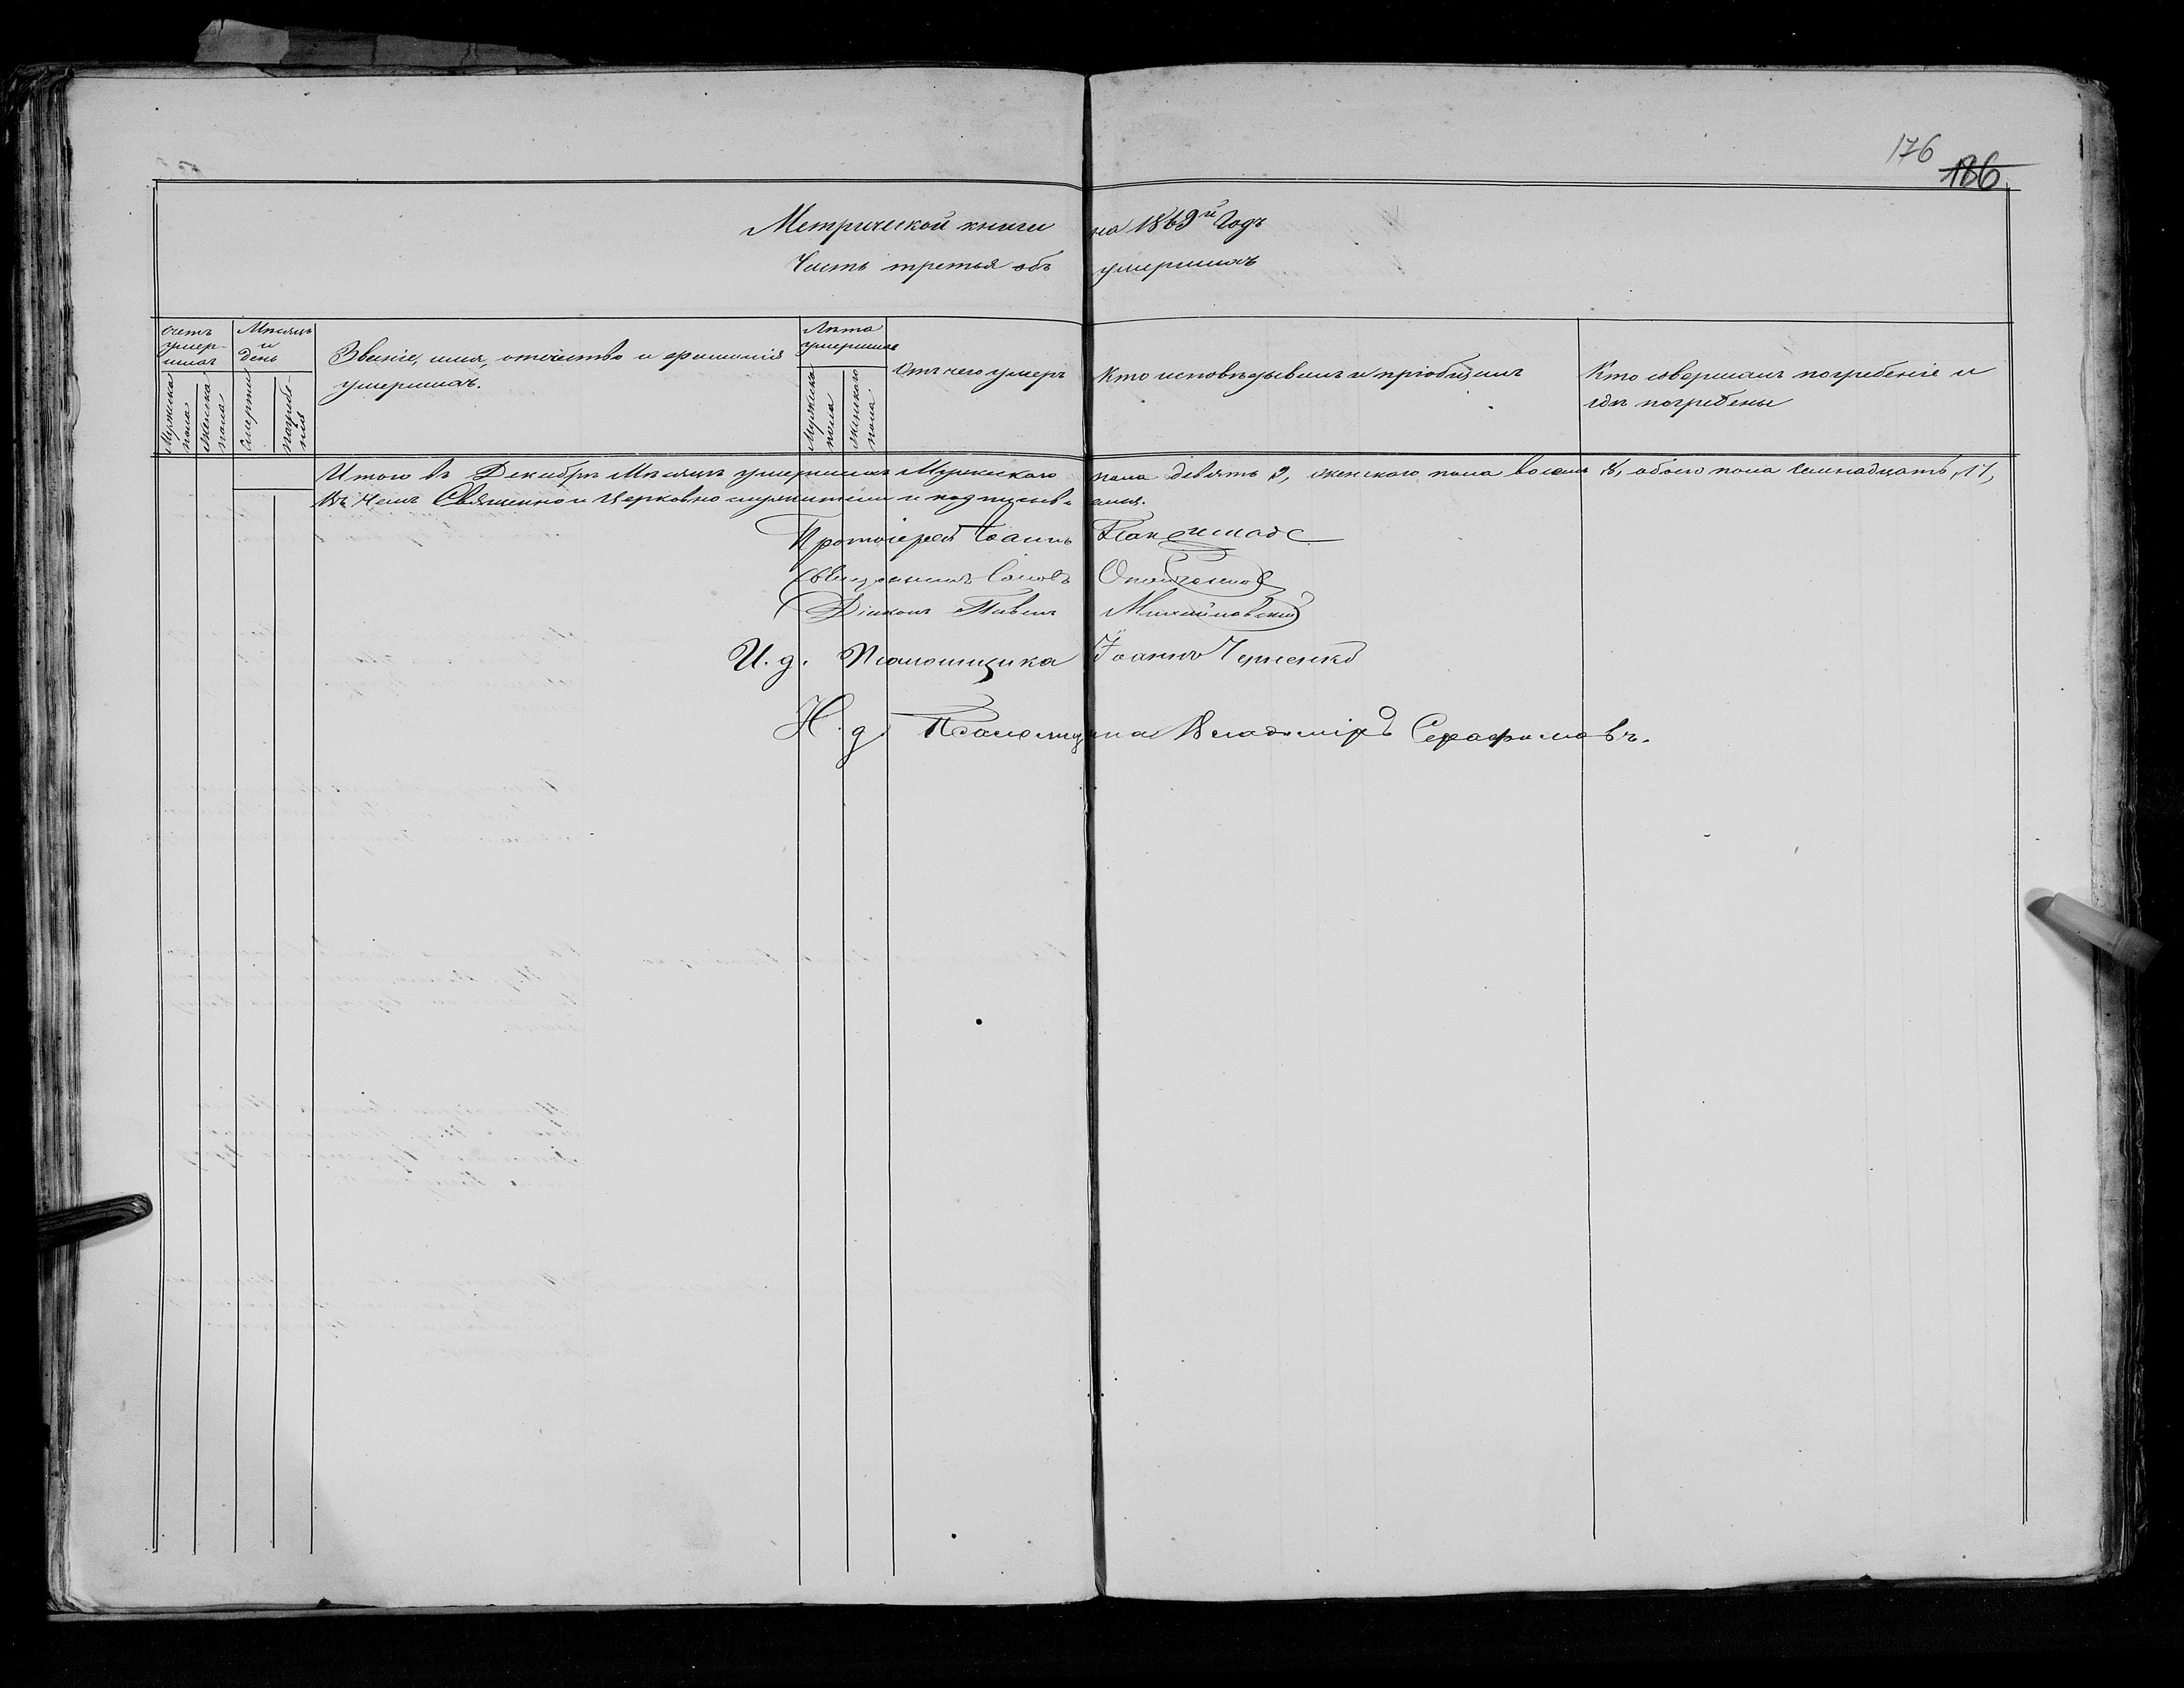 176
186
Метрической книги на 1869й Годъ
Часть третья объ умершихъ
счетъ умер-шихъ
Мужска пола
женска пола
Мѣсяцъ и день
смерти
погребе-нія
Званіе, имя, отчество и фамилія умершихъ.
Лѣта умершихъ
Мужска пола
женскаго пола
Отъ чего умеръ
Кто исповѣдывалъ и пріобщалъ
Кто совершалъ погребеніе и гдѣ погребены
Итого въ Декабрѣ Мѣсяцѣ умершихъ Мужескаго пола девять 9, женского пола восемь 8, обоего пола семнадцать, 17,
Въ чемъ Священно и Церковно служители и подписуемся.
Протоіерей Іоаннъ
Священникъ
Діаконъ Павелъ Михайловскій
И. д. Псаломщика Іоаннъ Черненко
И. д. Псаломщика Владиміръ Серафимовъ.